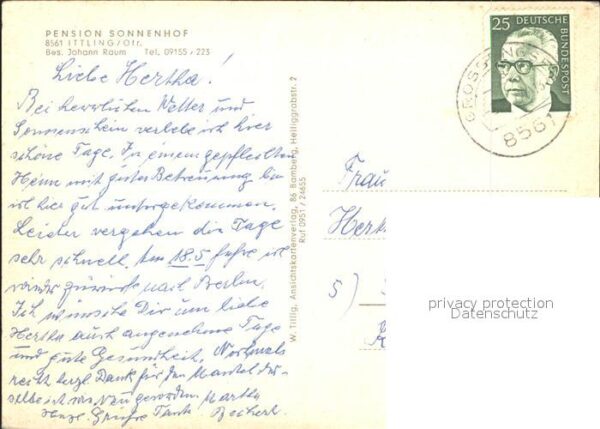 PENSION SONNENHOF
8561 ITTLING/Ofr.
Bes. Johann Raum Tel. 09155/223
Liebe Hertha!
Bei herrlichen Wetter und
Sonnenschein verlebe ich hier
schöne Tage. In einem gepflegten
Heim mit guter Betreuung bin
ich hier gut untergekommen.
Leider vergehen die Tage
sehr schnell. Am 18.5 fahre ich
wieder zurück nach Berlin.
Ich wünsche Dir um liebe
Hertha auch angenehme Tage
und gute Gesundheit. Nochmals
recht herzl. Dank für den Mantel der
selbe ist wie neu geworden. Martha
Herzl. Grüße Tante
W. Tillig, Ansichtskartenverlag, 86 Bamberg, Heiliggrabstr. 2
Ruf 0951/24655
25 DEUTSCHE
BUNDESPOST
8561
Frau
Her
5)
privacy protection
Datenschutz